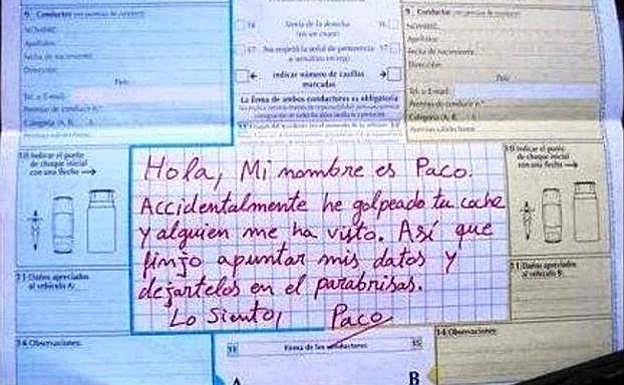 9. Conductor (ver permiso de conducir)
NOMBRE:
Apellidos:
Fecha de nacimiento:
Dirección:
País:
Tel. o E-mail:
Permiso de conducir n.º
Categoría (A, B,
16 Venía de la derecha 16
(en un cruce)
17 No respetó la señal de preferencia 17
o semáforo en rojo
indicar número de casillas
marcadas
La firma de ambos conductores es obligatoria
9. Conductor
NOMBRE:
Apellidos:
Fecha de nacimiento:
Dirección:
País:
Tel. o E-mail:
Permiso de conducir n.º
Categoría (A, B,
10 Indicar el punto
de choque inicial
con una flecha
Hola, Mi nombre es Paco.
Accidentalmente he golpeado tu coche
y alguien me ha visto. Así que
finjo apuntar mis datos y
dejártelos en el parabrisas.
Lo siento, Paco
10 Indicar el punto
de choque inicial
con una flecha
11 Daños apreciados
al vehículo A:
14 Observaciones:
11 Daños apreciados
al vehículo B:
14 Observaciones:
15 Firma de los conductores 15
A B